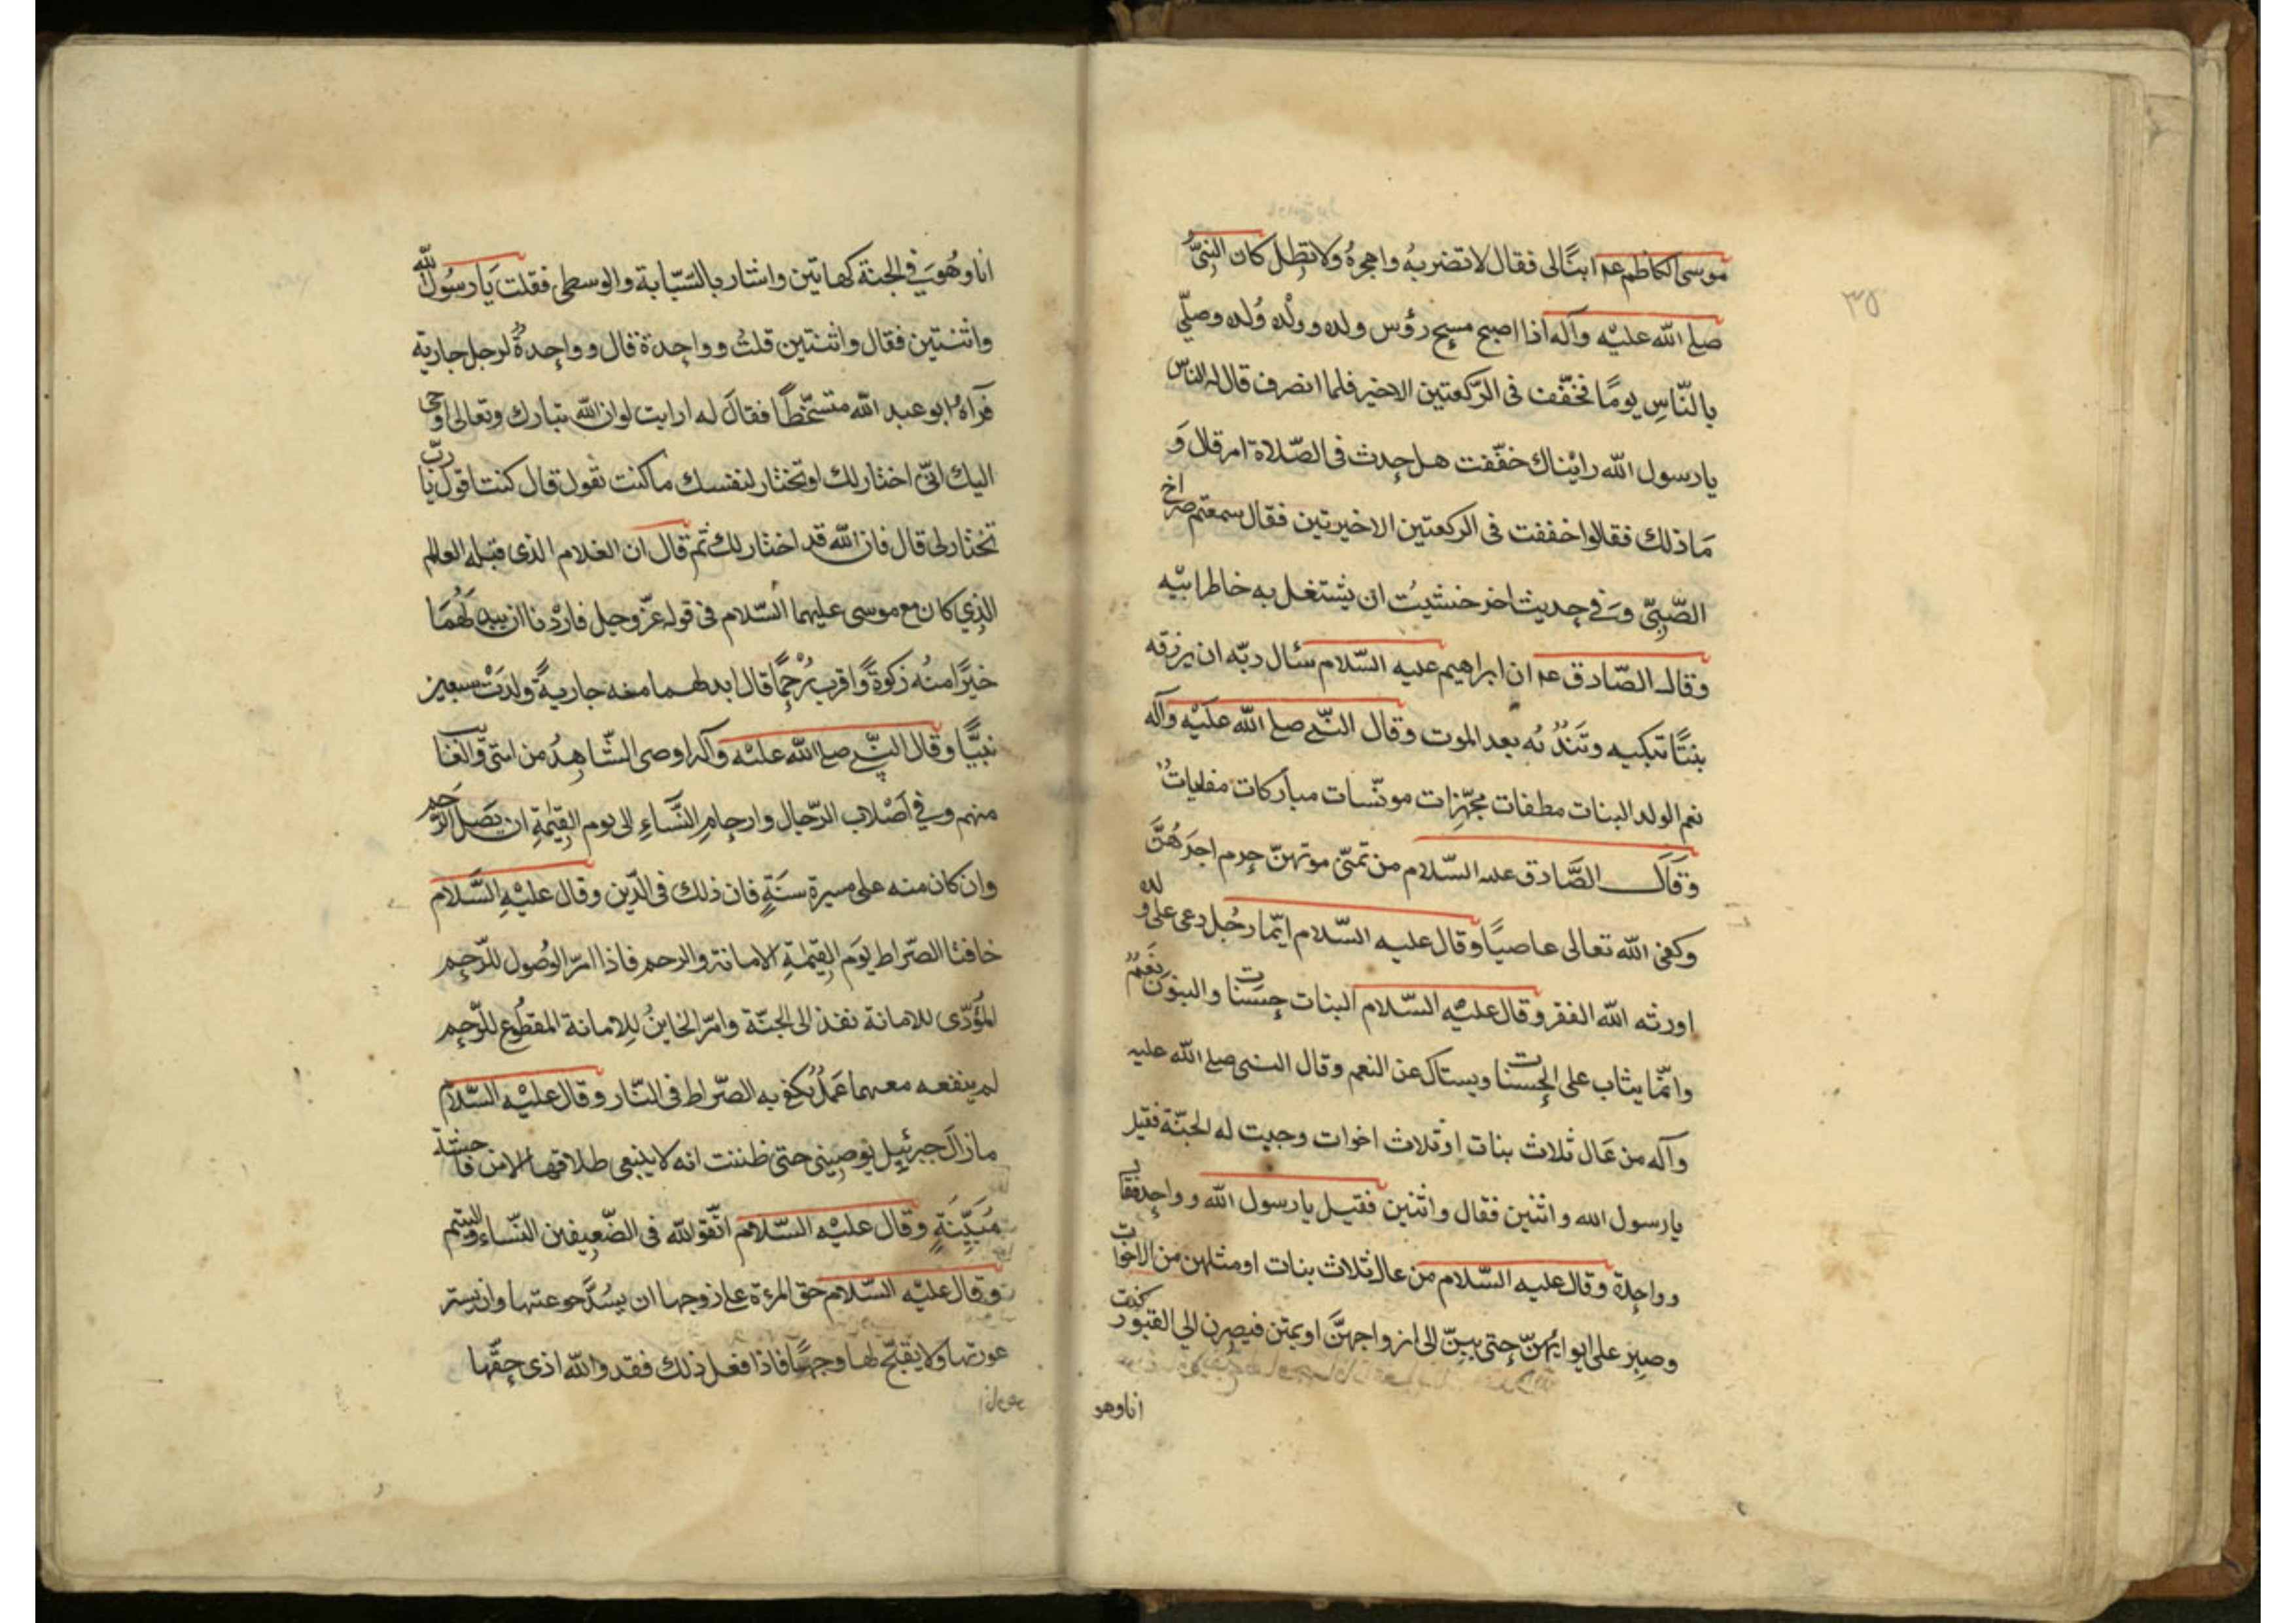 موسى الكاظم عم ابنًا لى فقال لا تضربهُ واهجرهُ ولا تطِل كان النبىُّ
صلى الله عليْه وآله اذا اصبح مسح رؤس ولده وولْد وُلده وصلّى
بالنّاسِ يومًا فخفّف فى الرّكعتين الاخير فلما انصرف قال له الناس
يا رسول الله رايْناك خفّفت هل حدث فى الصّلاة امر قال وَ
مَا ذلك فقالوا خففت فى الركعتين الاخيرتين فقال سمعتم صراخ
الصَّبِىّ وَفى حديث اخر خشيتُ ان يشتغل به خاطر ابيْه
وقال الصّادق عم ان ابراهيم عليه السّلام سئال ربّه ان يرزقه
بنتًا تبكيه وتَندُبُه بعد الموت وقال النّبى صلى الله عليْه وآله
نعم الولد البنات ملطفات مجهّزات مونّسات مباركات مفليات
وَقَال الصَّادق عليه السّلام من تمنّى موتهنّ حرم اجرَهُنَّ
وكفى الله تعالى عاصيًا وقال عليه السّلام ايّما رجُل دعى على ولده
اورثه الله الفقر وقال عليْه السّلام البنات حسنات والبنون نعَم
وانمّا يثاب على الحسنات ويسئال عن النعم وقال النبى صلى الله عليه
وآله من عَال ثلاث بنات او ثلاث اخوات وجبت له الجنّة فقيل
يا رسول الله واثنين فقال واثنين فقيل يا رسول الله وواحد فقال
وواحدة وقال عليه السّلام من عال ثلاث بنات او مثلهن من الاخوات
وصبر على ايوائهنّ حتى يبنّ الى ازواجهنَّ او يمتن فيصرن الى القبور كنت
انا وهو
انا وهُوَ فى الجنة كهاتين واشار بالسّبّابة والوسطى فقلت يَا رسُول الله
واثنتين فقال واثنتين قلتُ وواحدة قال وواحدةٌ لرجل جارية
فرآه ابو عبد الله متسخّطًا فقالَ له ارايت لو ان الله تبارك وتعالى اوحى
اليك انّى اختار لك او تختار لنفسك ما كنت تقول قال كنت اقول يا ربّ
تختار لى قال فان الله قد اختار لك ثم قال ان الغلام الذى قتله العالم
الذِي كان مع موسى عليهما السّلام فى قوله عزّ وجل فارَدْنا ان يبدلَهُمَا
خيرًا منهُ زكوةً واقربَ رُحْمًا قال ابدلهما منه جاريةً ولدَتْ سبعين
نبيًّا وقال النّبى صلى الله عليْه وآله اوصى الشّاهِدُ من امّتى والغايب
منهم وفي اَصْلاب الرّجال وارحامِ النَّسَاءِ الى يوم القِيمَةِ ان يَصَل الرَّحِم
وان كان منه على مسيرة سنَةٍ فان ذلك فى الدّين وقال عليْهِ السَّلام
حافتا الصّراط يوَم القِيمَةِ الامانة والرحم فاذا امرّ الوُصُول للرّحِم
المُؤدّى للامانة نفذ الى الجنّة وامرّ الخاينُ لِلامانة المقطُوع للرّحِم
لم ينفعه معهما عَمَلٌ تكفى به الصّراط فى النّار وقال عليْه السّلام
ما زالَ جبرئيل يوصينى حتى ظننت انه لا ينبغى طلاقها الا من فاحشة
مُبَيِّنَةٍ وقال عليْه السّلام اتّقو الله فى الضّعيفين النّساء واليتيم
وقال عليْه السّلام حق المرءة على زوجها ان يسُدَّ جوعتها وان يستر
عورتها ولا يقبّح لها وجهًا فاذا فعل ذلك فقد والله ادى حقّها